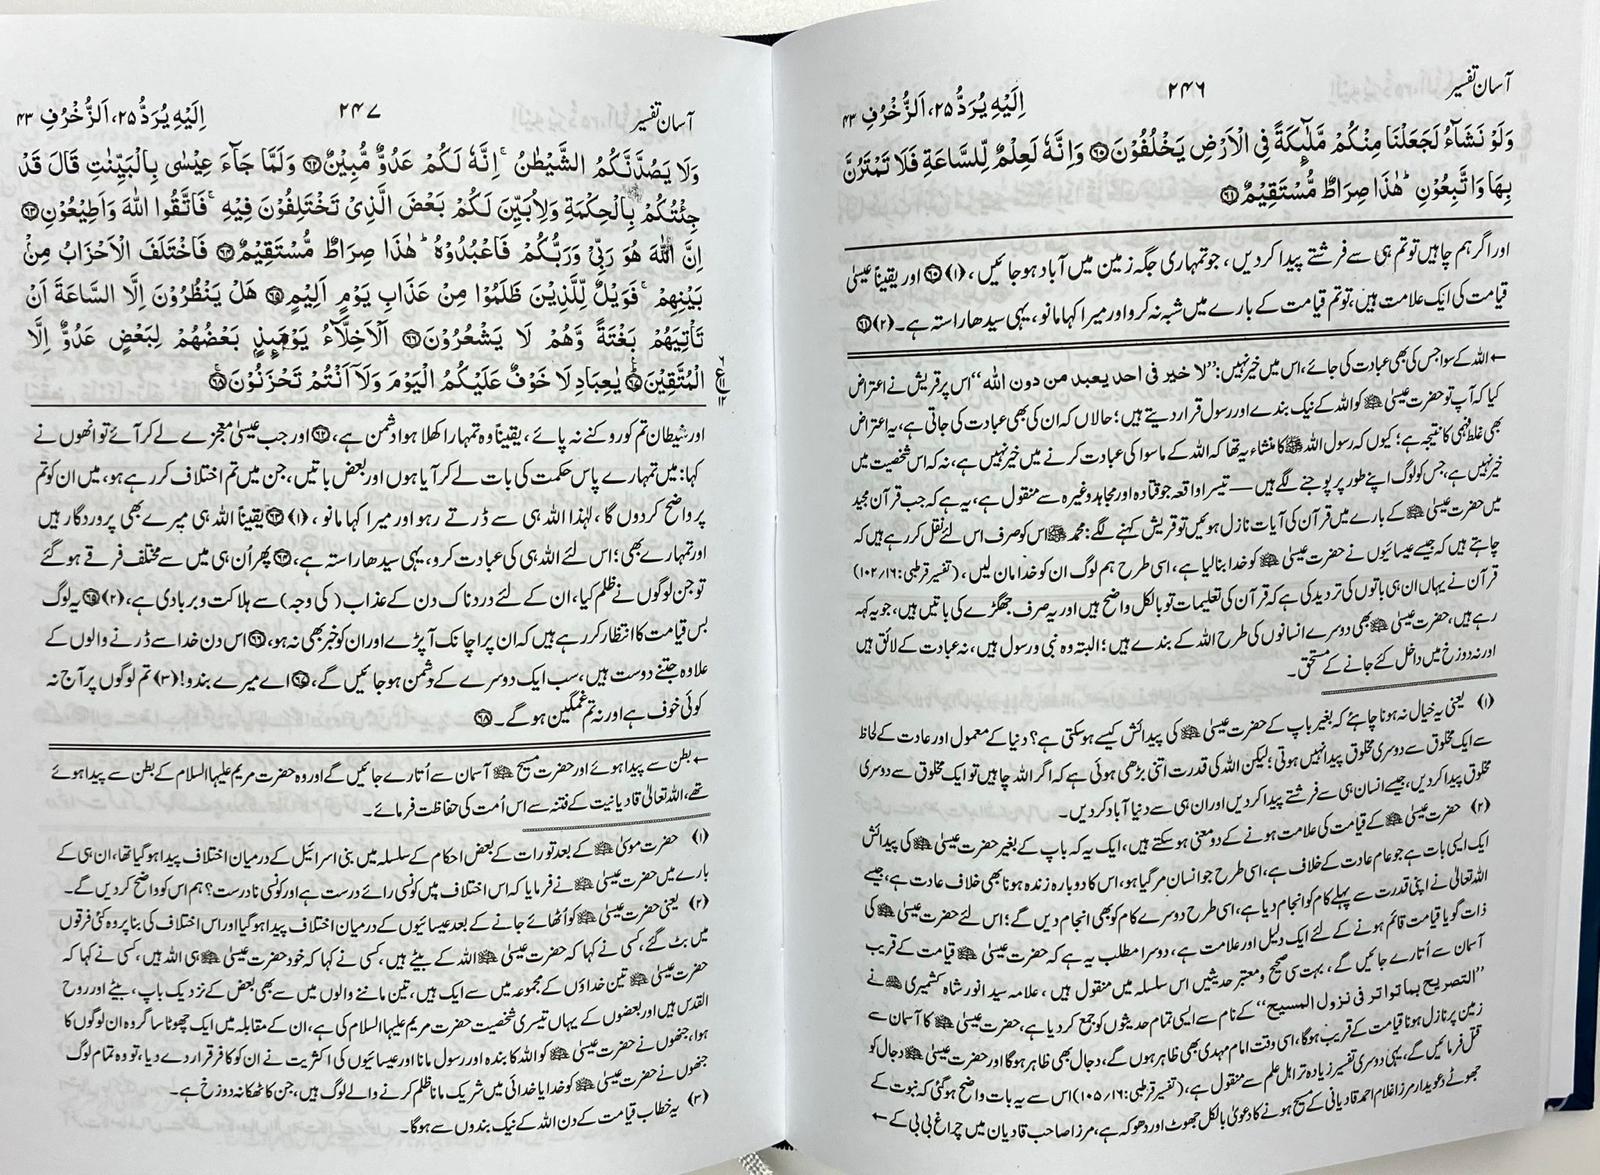 آسان تفسیر ۲۴۶ اِلَيْهِ يُرَدُّ ۲۵، اَلزُّخْرُفِ ۴۳
وَلَوْ نَشَآءُ لَجَعَلْنَا مِنْكُمْ مَّلٰٓئِكَةً فِى الْاَرْضِ يَخْلُفُوْنَ۶۰ وَاِنَّهٗ لَعِلْمٌ لِّلسَّاعَةِ فَلَا تَمْتَرُنَّ
بِهَا وَاتَّبِعُوْنِ ؕ هٰذَا صِرَاطٌ مُّسْتَقِيْمٌ۶۱
اور اگر ہم چاہیں تو تم ہی سے فرشتے پیدا کردیں، جو تمہاری جگہ زمین میں آباد ہوجائیں، (۱) ۶۰ اور یقیناً عیسیٰ
قیامت کی ایک علامت ہیں، تو تم قیامت کے بارے میں شبہ نہ کرو اور میرا کہا مانو، یہی سیدھا راستہ ہے۔ (۲) ۶۱
← اللہ کے سوا جس کی بھی عبادت کی جائے، اس میں خیر نہیں: ’’لا خير فى احد يعبد من دون الله‘‘ اس پر قریش نے اعتراض
کیا کہ آپ تو حضرت عیسیٰ ؑ کو اللہ کے نیک بندے اور رسول قرار دیتے ہیں؛ حالاں کہ ان کی بھی عبادت کی جاتی ہے، یہ اعتراض
بھی غلط فہمی کا نتیجہ ہے؛ کیوں کہ رسول اللہ ﷺ کا منشاء یہ تھا کہ اللہ کے ماسوا کی عبادت کرنے میں خیر نہیں ہے، نہ کہ اس شخصیت میں
خیر نہیں ہے، جس کو لوگ اپنے طور پر پوجنے لگے ہیں — تیسرا واقعہ جو قتادہ اور مجاہد وغیرہ سے منقول ہے، یہ ہے کہ جب قرآن مجید
میں حضرت عیسیٰ ؑ کے بارے میں قرآن کی آیات نازل ہوئیں تو قریش کہنے لگے: محمد ﷺ اس کو صرف اس لئے نقل کررہے ہیں کہ
چاہتے ہیں کہ جیسے عیسائیوں نے حضرت عیسیٰ ؑ کو خدا بنالیا ہے، اسی طرح ہم لوگ ان کو خدا مان لیں، (تفسیر قرطبی: ۱۶؍۱۰۲)
قرآن نے یہاں ان ہی باتوں کی تردید کی ہے کہ قرآن کی تعلیمات تو بالکل واضح ہیں اور یہ صرف جھگڑے کی باتیں ہیں، جو یہ کہہ
رہے ہیں، حضرت عیسیٰ ؑ بھی دوسرے انسانوں کی طرح اللہ کے بندے ہیں؛ البتہ وہ نبی و رسول ہیں، نہ عبادت کے لائق ہیں
اور نہ دوزخ میں داخل کئے جانے کے مستحق۔
(۱) یعنی یہ خیال نہ ہونا چاہئے کہ بغیر باپ کے حضرت عیسیٰ ؑ کی پیدائش کیسے ہوسکتی ہے؟ دنیا کے معمول اور عادت کے لحاظ
سے ایک مخلوق سے دوسری مخلوق پیدا نہیں ہوتی؛ لیکن اللہ کی قدرت اتنی بڑھی ہوئی ہے کہ اگر اللہ چاہیں تو ایک مخلوق سے دوسری
مخلوق پیدا کردیں، جیسے انسان ہی سے فرشتے پیدا کردیں اور ان ہی سے دنیا آباد کردیں۔
(۲) حضرت عیسیٰ ؑ کے قیامت کی علامت ہونے کے دو معنی ہوسکتے ہیں، ایک یہ کہ باپ کے بغیر حضرت عیسیٰ ؑ کی پیدائش
ایک ایسی بات ہے جو عام عادت کے خلاف ہے، اسی طرح جو انسان مرگیا ہو، اس کا دوبارہ زندہ ہونا بھی خلاف عادت ہے، جیسے
اللہ تعالیٰ نے اپنی قدرت سے پہلے کام کو انجام دیا ہے، اسی طرح دوسرے کام کو بھی انجام دیں گے؛ اس لئے حضرت عیسیٰ ؑ کی
ذات گویا قیامت قائم ہونے کے لئے ایک دلیل اور علامت ہے، دوسرا مطلب یہ ہے کہ حضرت عیسیٰ ؑ قیامت کے قریب
آسمان سے اُتارے جائیں گے، بہت سی صحیح و معتبر حدیثیں اس سلسلہ میں منقول ہیں، علامہ سید انور شاہ کشمیری ؒ نے
’’التصريح بما تواتر فى نزول المسيح‘‘ کے نام سے ایسی تمام حدیثوں کو جمع کردیا ہے، حضرت عیسیٰ ؑ کا آسمان سے
زمین پر نازل ہونا قیامت کے قریب ہوگا، اسی وقت امام مہدی بھی ظاہر ہوں گے، دجال بھی ظاہر ہوگا اور حضرت عیسیٰ ؑ دجال کو
قتل فرمائیں گے، یہی دوسری تفسیر زیادہ تر اہل علم سے منقول ہے، (تفسیر قرطبی: ۱۶؍۱۰۵) اس سے یہ بات واضح ہوگئی کہ نبوت کے
جھوٹے دعویدار مرزا غلام احمد قادیانی کے مسیح ہونے کا دعویٰ بالکل جھوٹ اور دھوکہ ہے، مرزا صاحب قادیان میں چراغ بی بی کے ←
آسان تفسیر ۲۴۷ اِلَيْهِ يُرَدُّ ۲۵، اَلزُّخْرُفِ ۴۳
وَلَا يَصُدَّنَّكُمُ الشَّيْطٰنُ ۚ اِنَّهٗ لَكُمْ عَدُوٌّ مُّبِيْنٌ۶۲ وَلَمَّا جَآءَ عِيْسٰى بِالْبَيِّنٰتِ قَالَ قَدْ
جِئْتُكُمْ بِالْحِكْمَةِ وَلِاُبَيِّنَ لَكُمْ بَعْضَ الَّذِىْ تَخْتَلِفُوْنَ فِيْهِ ۚ فَاتَّقُوا اللّٰهَ وَاَطِيْعُوْنِ۶۳
اِنَّ اللّٰهَ هُوَ رَبِّىْ وَرَبُّكُمْ فَاعْبُدُوْهُ ؕ هٰذَا صِرَاطٌ مُّسْتَقِيْمٌ۶۴ فَاخْتَلَفَ الْاَحْزَابُ مِنْۢ
بَيْنِهِمْ ۚ فَوَيْلٌ لِّلَّذِيْنَ ظَلَمُوْا مِنْ عَذَابِ يَوْمٍ اَلِيْمٍ۶۵ هَلْ يَنْظُرُوْنَ اِلَّا السَّاعَةَ اَنْ
تَاْتِيَهُمْ بَغْتَةً وَّهُمْ لَا يَشْعُرُوْنَ۶۶ اَلْاَخِلَّآءُ يَوْمَئِذٍۭ بَعْضُهُمْ لِبَعْضٍ عَدُوٌّ اِلَّا
الْمُتَّقِيْنَ۶۷ يٰعِبَادِ لَا خَوْفٌ عَلَيْكُمُ الْيَوْمَ وَلَآ اَنْتُمْ تَحْزَنُوْنَ۶۸
اور شیطان تم کو روکنے نہ پائے، یقیناً وہ تمہارا کھلا ہوا دشمن ہے، ۶۲ اور جب عیسیٰ معجزے لے کر آئے تو انھوں نے
کہا: میں تمہارے پاس حکمت کی بات لے کر آیا ہوں اور بعض باتیں، جن میں تم اختلاف کررہے ہو، میں ان کو تم
پر واضح کردوں گا، لہٰذا اللہ ہی سے ڈرتے رہو اور میرا کہا مانو، (۱) ۶۳ یقیناً اللہ ہی میرے بھی پروردگار ہیں
اور تمہارے بھی؛ اس لئے اللہ ہی کی عبادت کرو، یہی سیدھا راستہ ہے، ۶۴ پھر اُن ہی میں سے مختلف فرقے ہوگئے
تو جن لوگوں نے ظلم کیا، ان کے لئے دردناک دن کے عذاب (کی وجہ) سے ہلاکت و بربادی ہے، (۲) ۶۵ یہ لوگ
بس قیامت کا انتظار کررہے ہیں کہ ان پر اچانک آپڑے اور ان کو خبر بھی نہ ہو، ۶۶ اس دن خدا سے ڈرنے والوں کے
علاوہ جتنے دوست ہیں، سب ایک دوسرے کے دشمن ہوجائیں گے، ۶۷ اے میرے بندو! (۳) تم لوگوں پر آج نہ
کوئی خوف ہے اور نہ تم غمگین ہوگے۔ ۶۸
← بطن سے پیدا ہوئے اور حضرت مسیح ؑ آسمان سے اُتارے جائیں گے اور وہ حضرت مریم علیہا السلام کے بطن سے پیدا ہوئے
تھے، اللہ تعالیٰ قادیانیت کے فتنہ سے اس اُمت کی حفاظت فرمائے۔
(۱) حضرت موسیٰ ؑ کے بعد تورات کے بعض احکام کے سلسلہ میں بنی اسرائیل کے درمیان اختلاف پیدا ہوگیا تھا، ان ہی کے
بارے میں حضرت عیسیٰ ؑ نے فرمایا کہ اس اختلاف میں کونسی رائے درست ہے اور کونسی نادرست؟ ہم اس کو واضح کردیں گے۔
(۲) یعنی حضرت عیسیٰ ؑ کو اُٹھائے جانے کے بعد عیسائیوں کے درمیان اختلاف پیدا ہوگیا اور اس اختلاف کی بنا پر وہ کئی فرقوں
میں بٹ گئے، کسی نے کہا کہ حضرت عیسیٰ ؑ اللہ کے بیٹے ہیں، کسی نے کہا کہ خود حضرت عیسیٰ ؑ ہی اللہ ہیں، کسی نے کہا کہ
حضرت عیسیٰ ؑ تین خداؤں کے مجموعہ میں سے ایک ہیں، تین ماننے والوں میں سے بھی بعض کے نزدیک باپ، بیٹے اور روح
القدس ہیں اور بعضوں کے یہاں تیسری شخصیت حضرت مریم علیہا السلام کی ہے، ان کے مقابلہ میں ایک چھوٹا سا گروہ ان لوگوں کا
ہوا، جنھوں نے حضرت عیسیٰ ؑ کو اللہ کا بندہ اور رسول مانا اور عیسائیوں کی اکثریت نے ان کو کافر قرار دے دیا، تو وہ تمام لوگ
جنھوں نے حضرت عیسیٰ ؑ کو خدا یا خدائی میں شریک مانا ظلم کرنے والے لوگ ہیں، جن کا ٹھکانہ دوزخ ہے۔
(۳) یہ خطاب قیامت کے دن اللہ کے نیک بندوں سے ہوگا۔